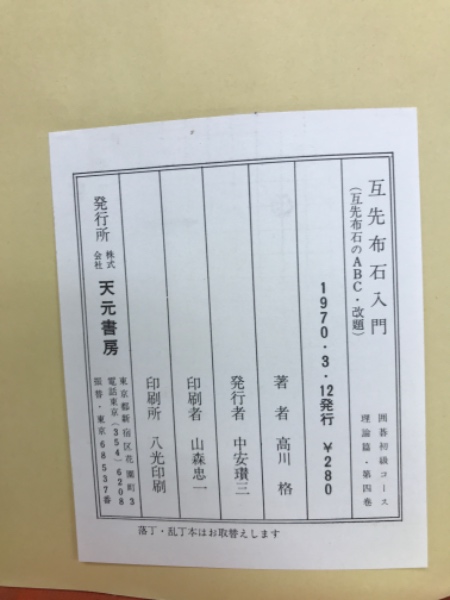 囲碁初級コース
理論篇・第四巻
互先布石入門
(互先布石のABC・改題)
1970・3・12発行 ¥280
著者 高川格
発行者 中安瓚三
印刷者 山森忠一
印刷所 八光印刷
発行所 株式会社 天元書房
東京都新宿区花園町3
電話東京(354)6208
振替・東京68537番
落丁・乱丁本はお取替えします